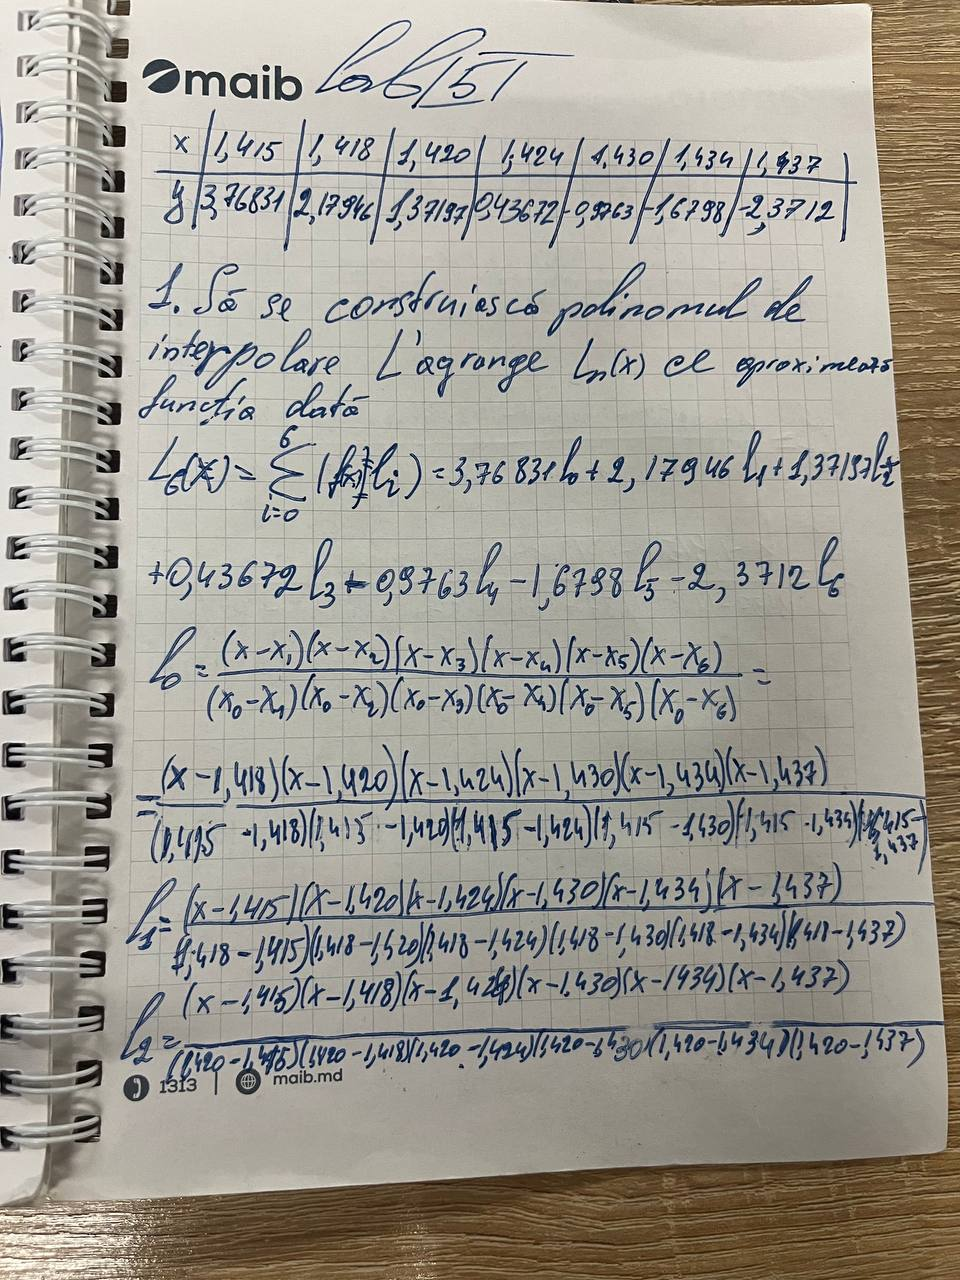 maib lab 5
x | 1,415 | 1,418 | 1,420 | 1,424 | 1,430 | 1,434 | 1,437
y | 3,76831 | 2,17946 | 1,37197 | 0,43672 | -0,9763 | -1,6798 | -2,3712
1. Să se construiască polinomul de
interpolare L'agrange Ln(x) ce aproximează
funcția dată
L₆(x) = Σ i=0 6 lᵢ) = 3,76831 l₀ + 2,17946 l₁ + 1,37197 l₂
+0,43672 l₃ - 0,9763 l₄ - 1,6798 l₅ - 2,3712 l₆
l₀ = (x-x₁)(x-x₂)(x-x₃)(x-x₄)(x-x₅)(x-x₆)
(x₀-x₁)(x₀-x₂)(x₀-x₃)(x₀-x₄)(x₀-x₅)(x₀-x₆) =
= (x-1,418)(x-1,420)(x-1,424)(x-1,430)(x-1,434)(x-1,437)
(1,415-1,418)(1,415-1,420)(1,415-1,424)(1,415-1,430)(1,415-1,434)(1,415-1,437)
l₁ = (x-1,415)(x-1,420)(x-1,424)(x-1,430)(x-1,434)(x-1,437)
(1,418-1,415)(1,418-1,420)(1,418-1,424)(1,418-1,430)(1,418-1,434)(1,418-1,437)
l₂ = (x-1,415)(x-1,418)(x-1,424)(x-1,430)(x-1434)(x-1,437)
(1,420-1,415)(1,420-1,418)(1,420-1,424)(1,420-1,430)(1,420-1,434)(1,420-1,437)
1313 | maib.md